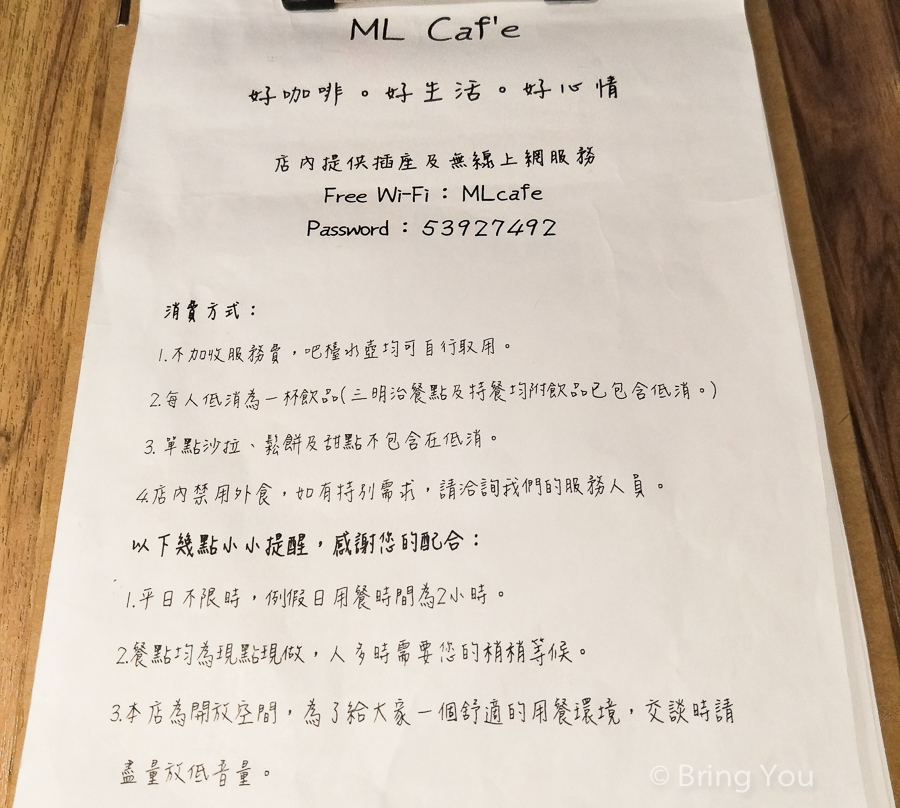 ML Caf'e
好咖啡。好生活。好心情
店內提供插座及無線上網服務
Free Wi-Fi：MLcafe
Password：53927492
消費方式：
1.不加收服務費，吧檯水壺均可自行取用。
2.每人低消為一杯飲品(三明治餐點及特餐均附飲品已包含低消。)
3.單點沙拉、鬆餅及甜點不包含在低消。
4.店內禁用外食，如有特別需求，請洽詢我們的服務人員。
以下幾點小小提醒，感謝您的配合：
1.平日不限時，例假日用餐時間為2小時。
2.餐點均為現點現做，人多時需要您的稍稍等候。
3.本店為開放空間，為了給大家一個舒適的用餐環境，交談時請
盡量放低音量。
© Bring You